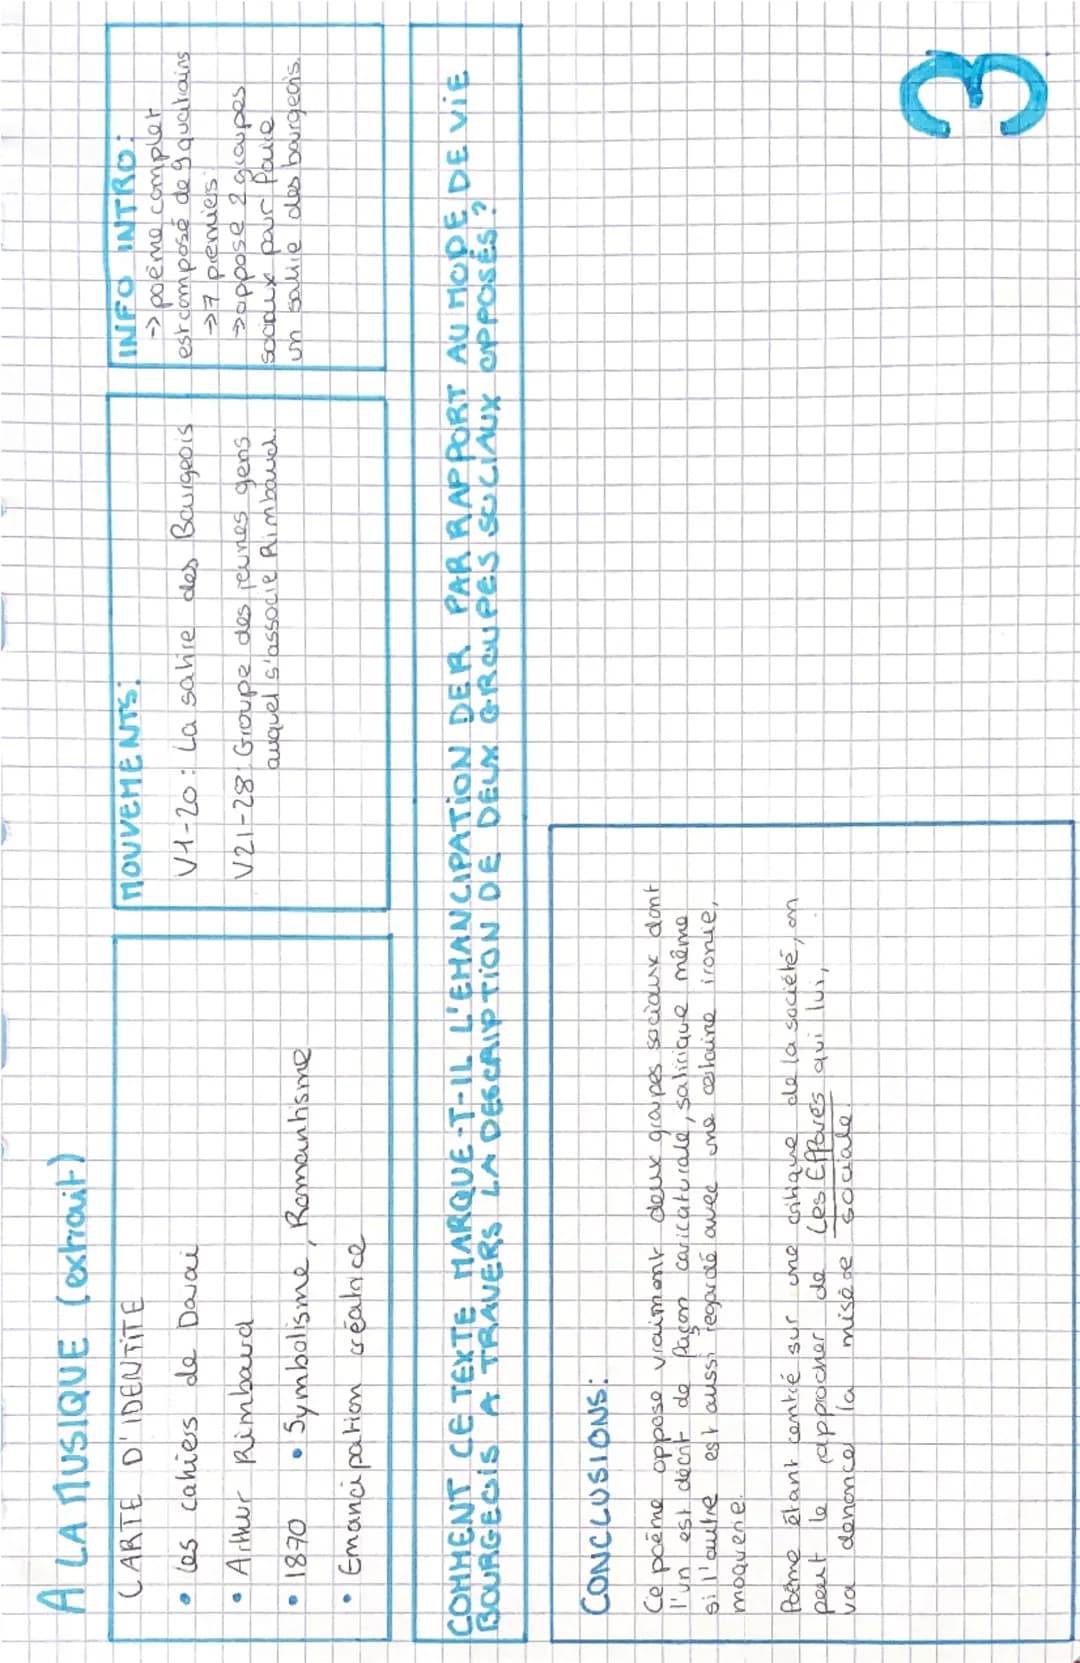 A LA MUSIQUE (extrait)
CARTE D'IDENTITE
• Les cahiers de Douai
• Arthur Rimbaud
• 1870 • Symbolisme, Romantisme
• Emancipation créatrice
MOUVEMENTS:
V1-20: La satire des Bourgeois
V21-28: Groupe des jeunes gens
auquel s'associe Rimbaud.
INFO INTRO:
-> poème complet
est composé de 9 quatrains
-> 7 premiers:
-> oppose 2 groupes
sociaux pour faire
un satire des bourgeois.
COMMENT CE TEXTE MARQUE-T-IL L'EMANCIPATION DE R PAR RAPPORT AU MODE DE VIE
BOURGEOIS A TRAVERS LA DESCRIPTION DE DEUX GROUPES SOCIAUX OPPOSÉS?
CONCLUSIONS:
Ce poème oppose vraiment deux groupes sociaux dont
l'un est décrit de façon caricaturale, satirique même
si l'autre est aussi regardé avec une certaine ironie,
moquerie.
Poème étant centré sur une critique de la société, on
peut le rapprocher de Les Effarés qui lui,
va dénoncer la misère sociale.
3